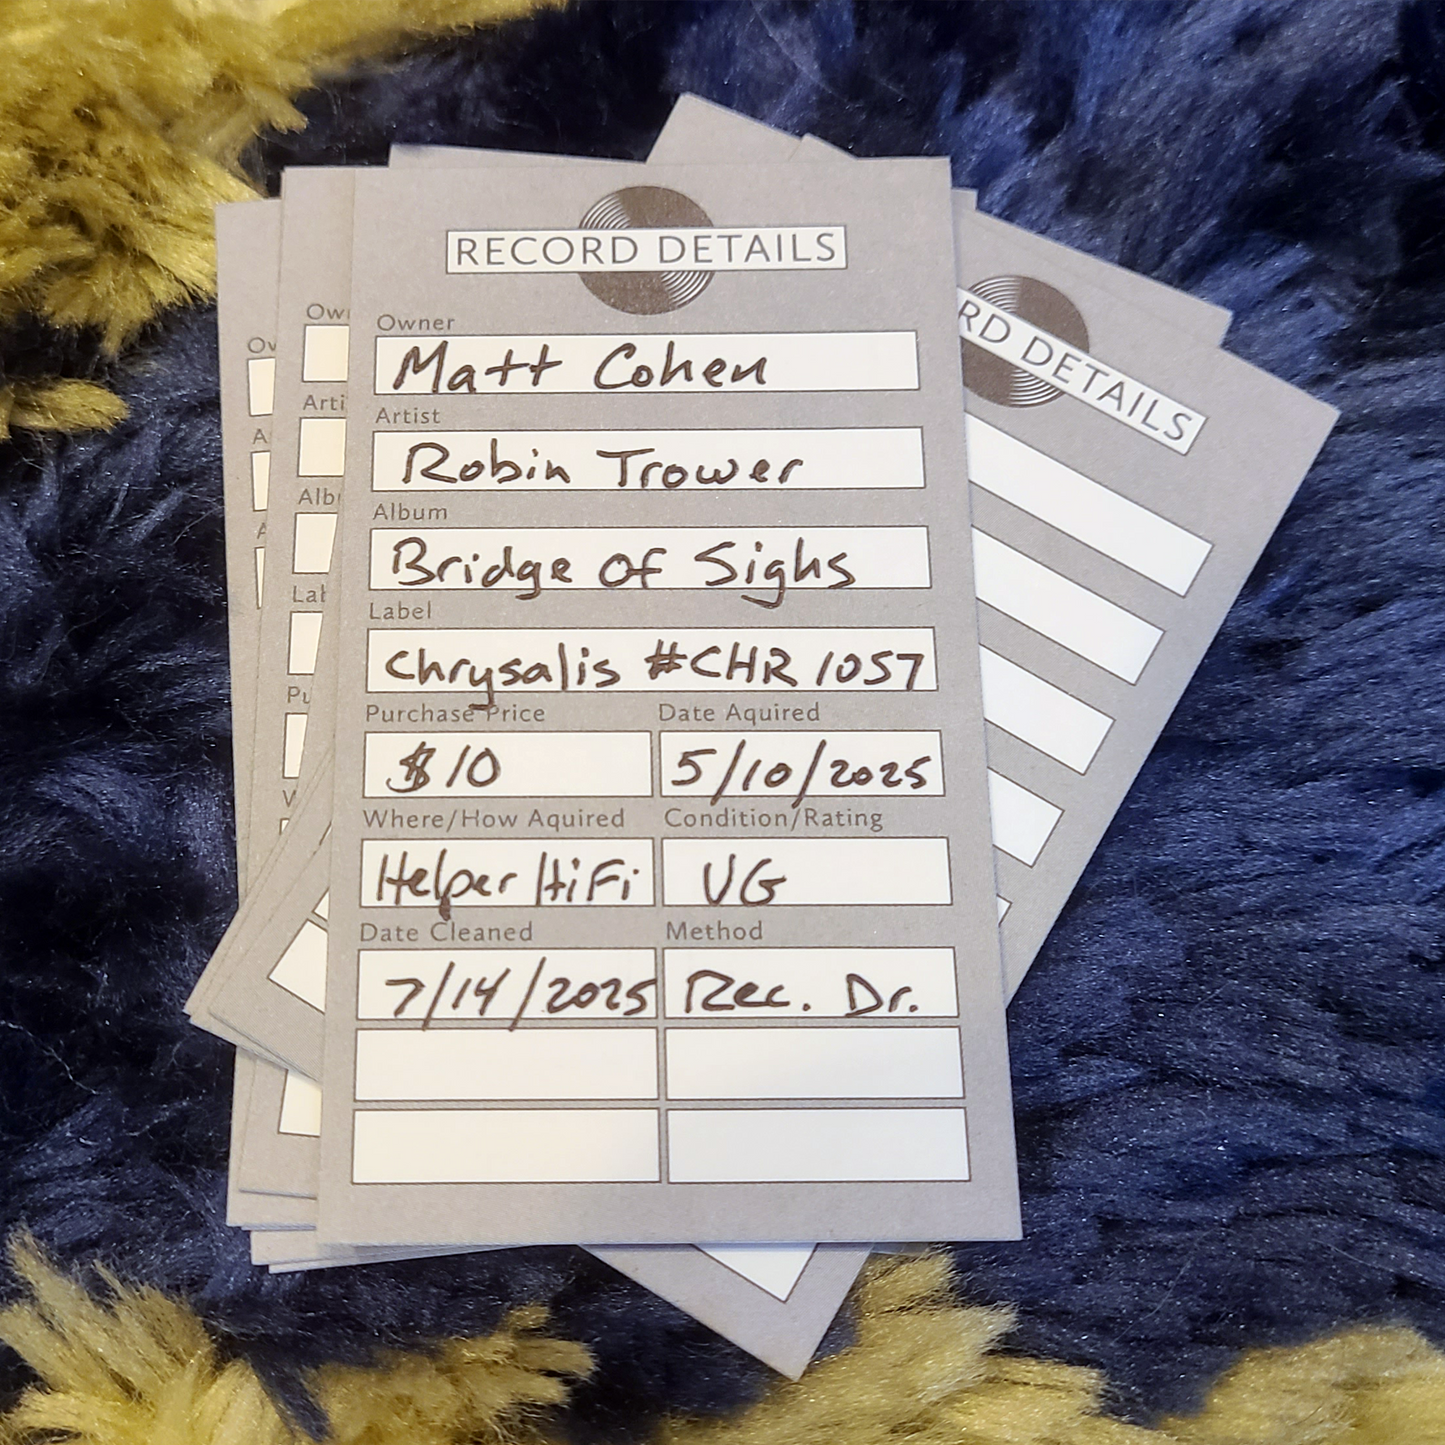 RECORD DETAILS
Owner
Matt Cohen
Artist
Robin Trower
Album
Bridge of Sighs
Label
Chrysalis #CHR 1057
Purchase Price Date Aquired
$10 5/10/2025
Where/How Aquired Condition/Rating
Helper HiFi VG
Date Cleaned Method
7/14/2025 Rec. Dr.
RD DETAILS
Ow
Arti
Alb
Lab
Pu
W
Ow
A
A